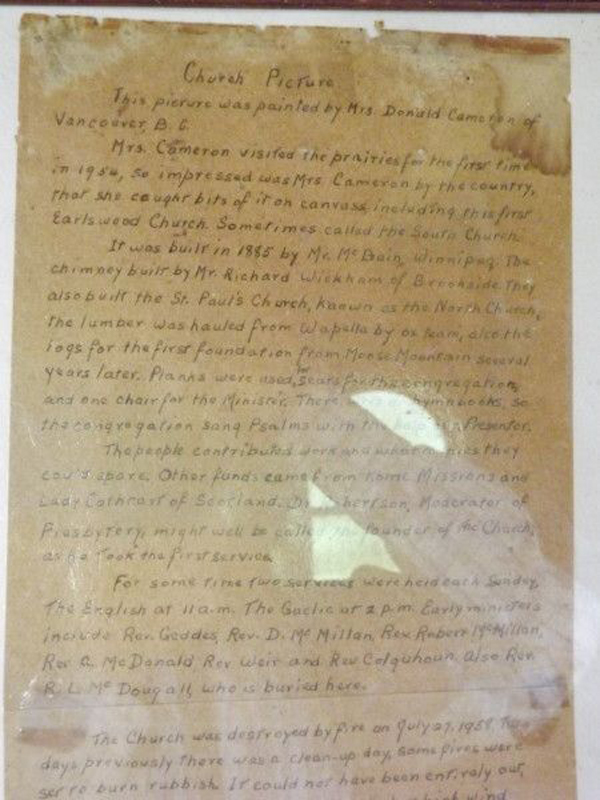 Church Picture
This picture was painted by Mrs. Donald Cameron of
Vancouver, B.C.
Mrs. Cameron visited the prairies for the first time
in 1954, so impressed was Mrs. Cameron by the country,
that she caught bits of it on canvass including this first
Earlswood Church. Sometimes called the South Church.
It was built in 1885 by Mr. McBain, Winnipeg. The
chimney built by Mr. Richard Wickham of Brookside. They
also built the St. Paul's Church, known as the North Church,
the lumber was hauled from Wapella by ox team, also the
logs for the first foundation from Moose Mountain several
years later. Planks were used, for seats for the congregation,
and one chair for the Minister. There hymn books, so
the congregation sang Psalms with the Presenter.
The people contributed work and what they
could spare. Other funds came from Home Missions and
Lady Cathcart of Scotland. Moderator of
Presbytery, might well be called the founder of the Church,
as he took the first service.
For some time two services were held each Sunday,
The English at 11 a.m. The Gaelic at 2 p.m. Early ministers
include Rev. Geddes, Rev. D. McMillan, Rev. Robert McMillan,
Rev. McDonald Rev Weir and Rev Colquhoun. Also Rev.
R. L. McDougall, who is buried here.
The Church was destroyed by fire on July 27, two
days previously there was a clean-up day, some fires were
set to burn rubbish. It could not have been entirely out,
high wind